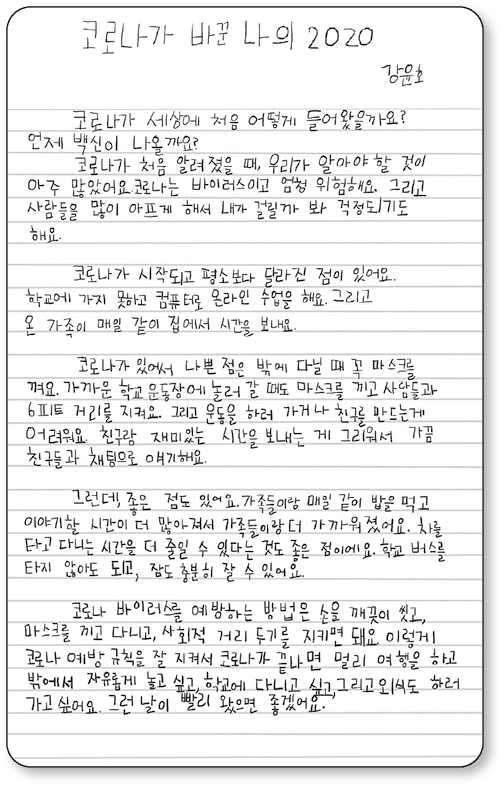 코로나가 바꾼 나의 2020
강윤호
코로나가 세상에 처음 어떻게 들어왔을까요?
언제 백신이 나올까요?
코로나가 처음 알려졌을 때, 우리가 알아야 할 것이
아주 많았어요. 코로나는 바이러스이고 엄청 위험해요. 그리고
사람들을 많이 아프게 해서 내가 걸릴까 봐 걱정되기도
해요.
코로나가 시작되고 평소보다 달라진 점이 있어요.
학교에 가지 못하고 컴퓨터로 온라인 수업을 해요. 그리고
온 가족이 매일 같이 집에서 시간을 보내요.
코로나가 있어서 나쁜 점은 밖에 다닐 때 꼭 마스크를
껴요. 가까운 학교 운동장에 놀러 갈 때도 마스크를 끼고 사람들과
6피트 거리를 지켜요. 그리고 운동을 하러 가거나 친구를 만드는게
어려워요. 친구랑 재미있는 시간을 보내는 게 그리워서 가끔
친구들과 채팅으로 얘기해요.
그런데, 좋은 점도 있어요. 가족들이랑 매일 같이 밥을 먹고
이야기할 시간이 더 많아져서 가족들이랑 더 가까워졌어요. 차를
타고 다니는 시간을 더 줄일 수 있다는 것도 좋은 점이에요. 학교 버스를
타지 않아도 되고, 잠도 충분히 잘 수 있어요.
코로나 바이러스를 예방하는 방법은 손을 깨끗이 씻고,
마스크를 끼고 다니고, 사회적 거리 두기를 지키면 돼요. 이렇게
코로나 예방 규칙을 잘 지켜서 코로나가 끝나면 멀리 여행을 하고
밖에서 자유롭게 놀고 싶고, 학교에 다니고 싶고, 그리고 외식도 하러
가고 싶어요. 그런 날이 빨리 왔으면 좋겠어요.